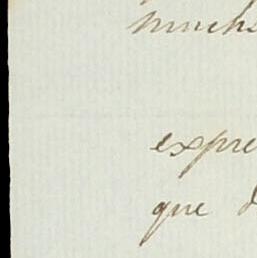 mucho
expre
que d